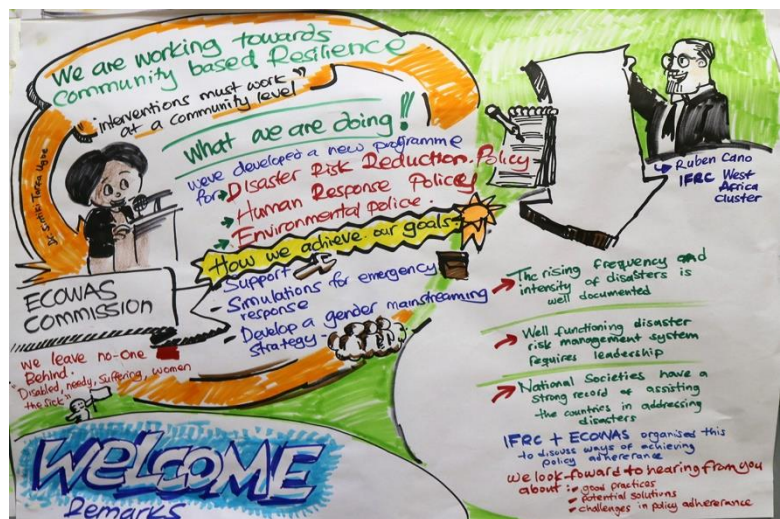 We are working towards
community based Resilience
"interventions must work
at a community level"
What we are doing!
weve developed a new programme
for → Disaster Risk Reduction Policy
→ Human Response Policy
→ Environmental police.
How we achieve our goals.
- Support
- Simulations for emergency
response
- Develop a gender mainstreaming
strategy -
ECOWAS
COMMISSION
we leave no-one
Behind.
"Disabled, needy, Suffering, women
the sick"
WELCOME
Remarks
Ruben Cano
IFRC West
Africa
cluster
The rising frequency and
intensity of disasters is
well documented
Well functioning disaster
risk management system
requires leadership
National Societies have a
strong record of assisting
the countries in addressing
disasters
IFRC + ECOWAS organised this
to discuss ways of achieving
policy adhererance
we look-foward to hearing from you
about :- good practices
potential solutions
challenges in policy adhererance